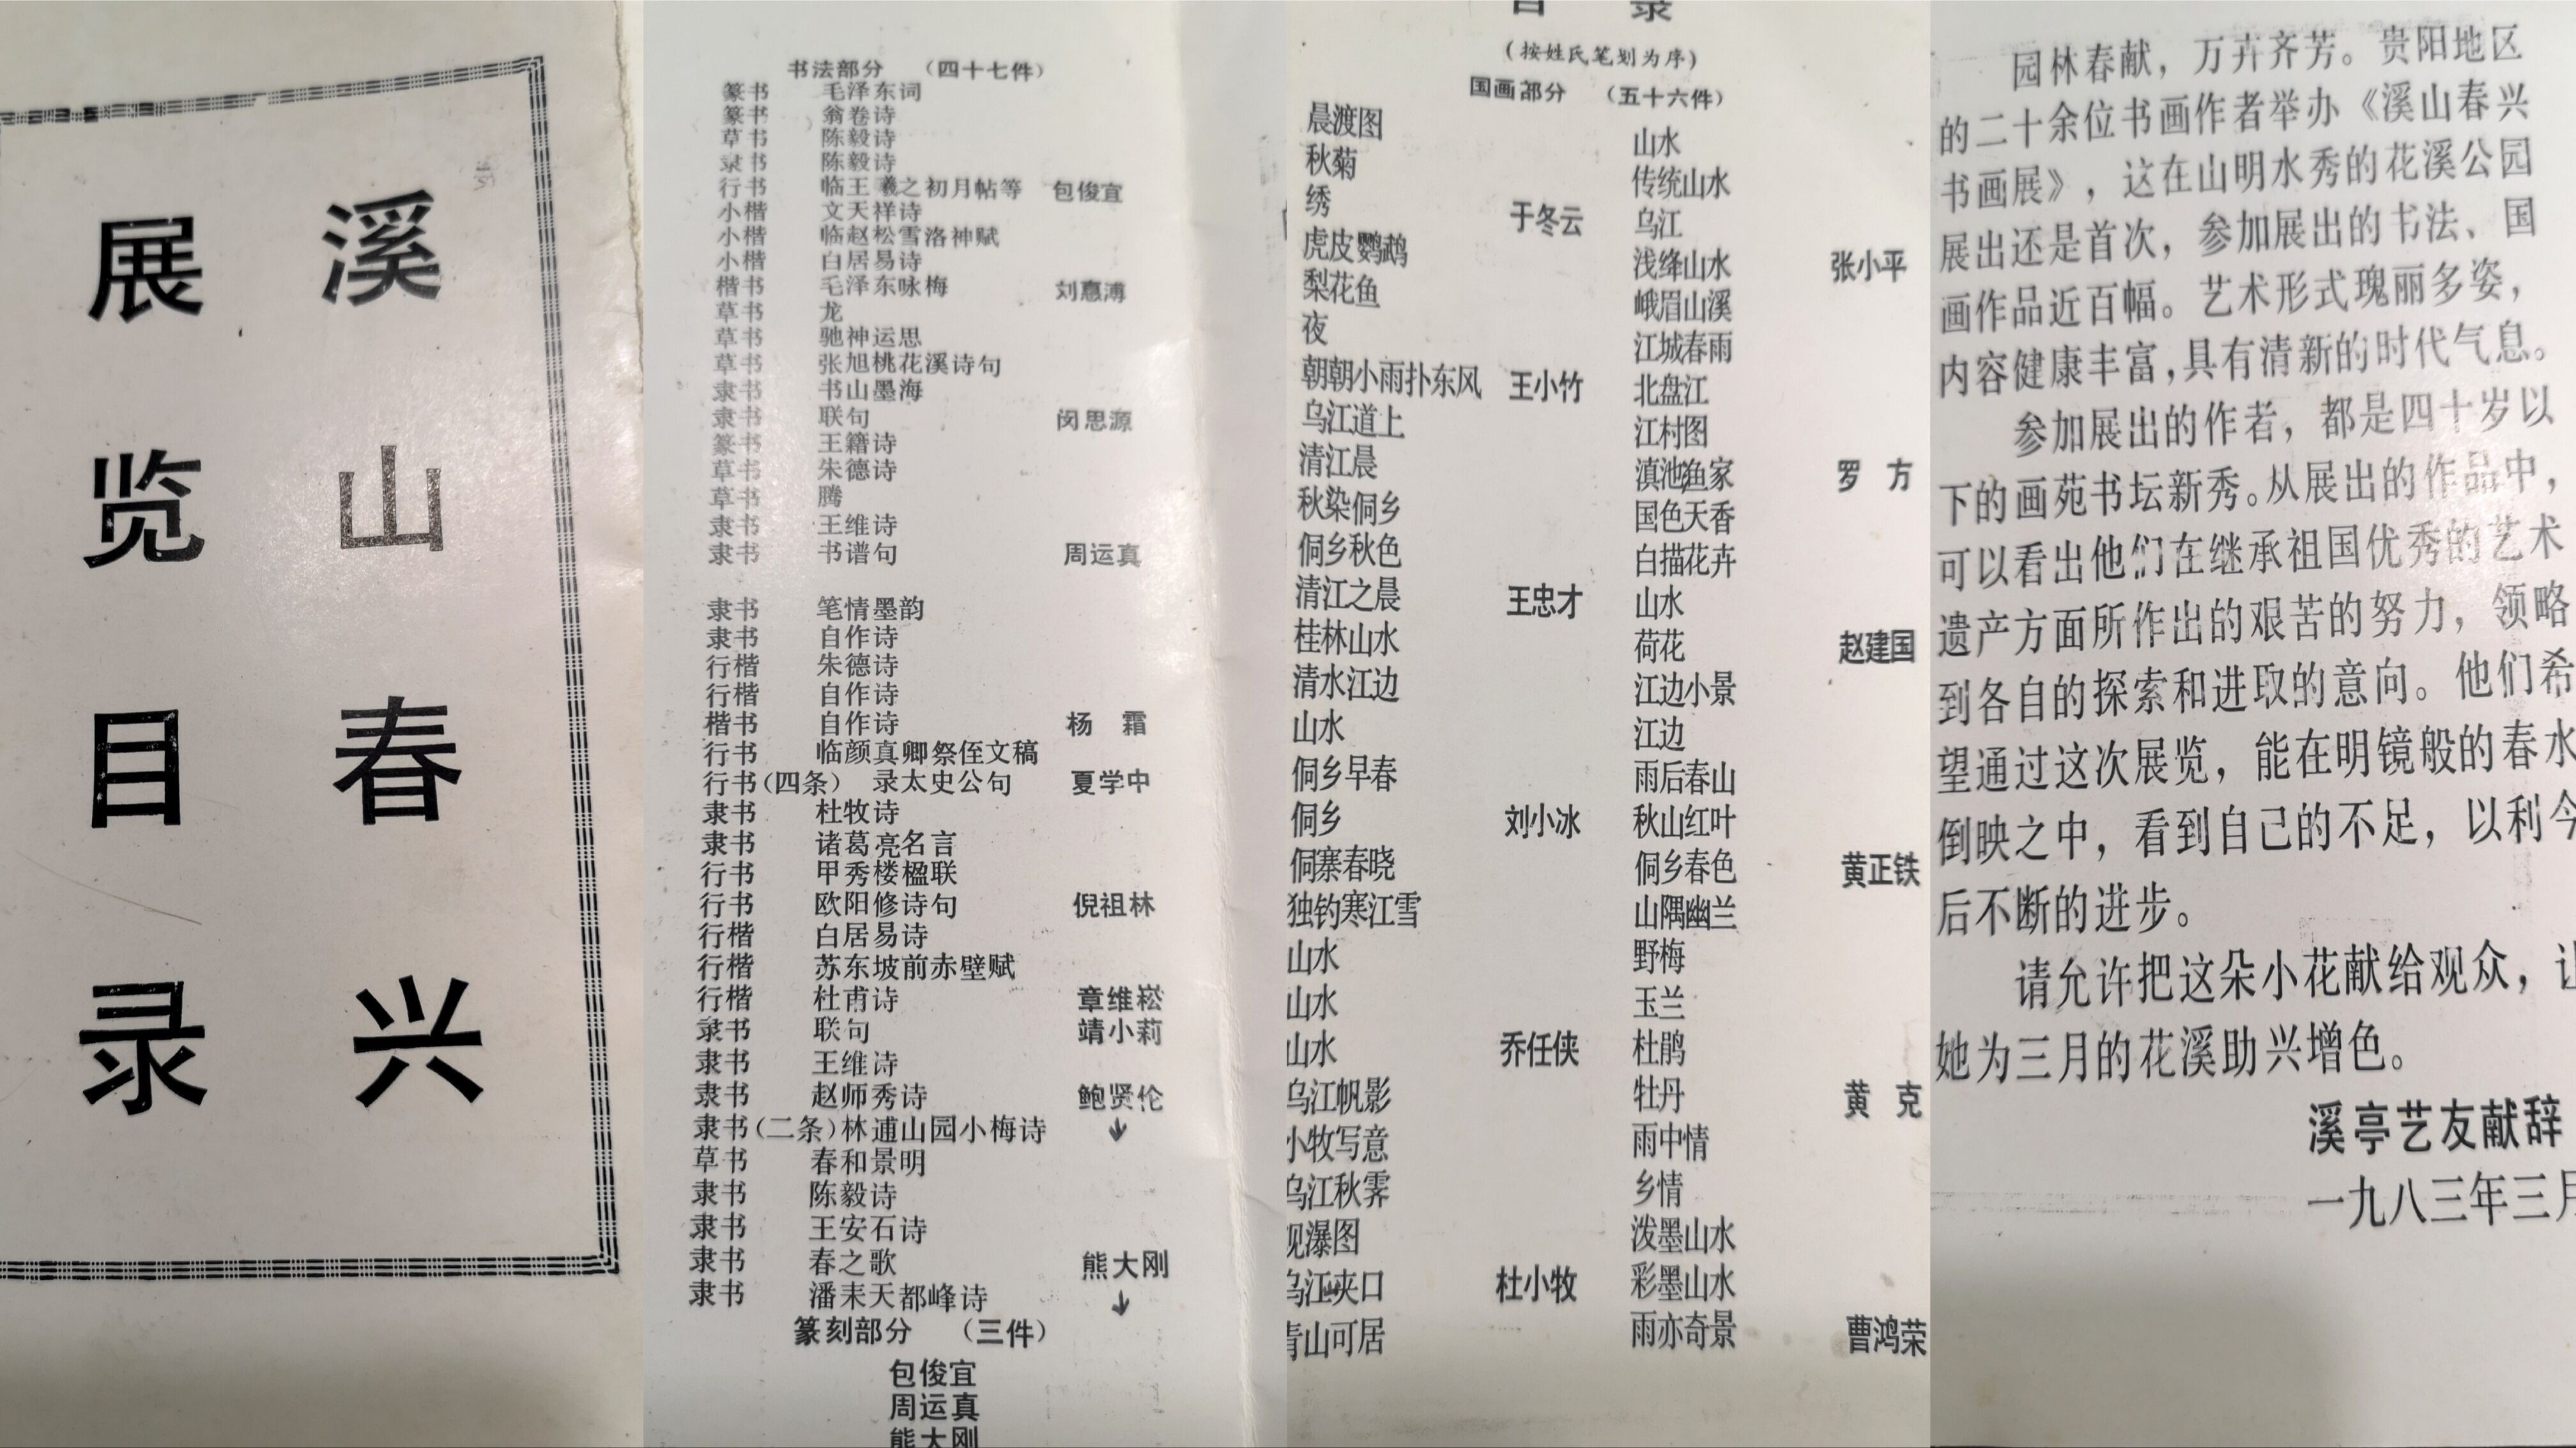 溪山春兴
展览目录
书法部分 （四十七件）
篆书 毛泽东词
篆书 翁卷诗
草书 陈毅诗
隶书 陈毅诗
行书 临王羲之初月帖等 包俊宜
小楷 文天祥诗
小楷 临赵松雪洛神赋
小楷 白居易诗
楷书 毛泽东咏梅 刘惠溥
草书 龙
草书 驰神运思
草书 张旭桃花溪诗句
隶书 书山墨海
隶书 联句 闵思源
篆书 王籍诗
草书 朱德诗
草书 腾
隶书 王维诗
隶书 书谱句 周运真
隶书 笔情墨韵
隶书 自作诗
行楷 朱德诗
行楷 自作诗
楷书 自作诗 杨 霜
行书 临颜真卿祭侄文稿
行书(四条) 录太史公句 夏学中
隶书 杜牧诗
隶书 诸葛亮名言
行书 甲秀楼楹联
行书 欧阳修诗句 倪祖林
行楷 白居易诗
行楷 苏东坡前赤壁赋
行楷 杜甫诗 章维崧
隶书 联句 靖小莉
隶书 王维诗
隶书 赵师秀诗 鲍贤伦
隶书(二条) 林逋山园小梅诗 ↓
草书 春和景明
隶书 陈毅诗
隶书 王安石诗
隶书 春之歌 熊大刚
隶书 潘耒天都峰诗 ↓
篆刻部分 （三件）
包俊宜
周运真
熊大刚
目 录
（按姓氏笔划为序）
国画部分 （五十六件）
晨渡图
秋菊
绣 于冬云
虎皮鹦鹉
梨花鱼
夜
朝朝小雨扑东风 王小竹
乌江道上
清江晨
秋染侗乡
侗乡秋色
清江之晨 王忠才
桂林山水
清水江边
山水
侗乡早春
侗乡 刘小冰
侗寨春晓
独钓寒江雪
山水
山水
山水 乔任侠
乌江帆影
小牧写意
乌江秋霁
观瀑图
乌江夹口 杜小牧
青山可居
山水
传统山水
乌江
浅绛山水 张小平
峨眉山溪
江城春雨
北盘江
江村图
滇池渔家 罗 方
国色天香
白描花卉
山水
荷花 赵建国
江边小景
江边
雨后春山
秋山红叶
侗乡春色 黄正铁
山隅幽兰
野梅
玉兰
杜鹃
牡丹 黄 克
雨中情
乡情
泼墨山水
彩墨山水
雨亦奇景 曹鸿荣
园林春献，万卉齐芳。贵阳地区
的二十余位书画作者举办《溪山春兴
书画展》，这在山明水秀的花溪公园
展出还是首次，参加展出的书法、国
画作品近百幅。艺术形式瑰丽多姿，
内容健康丰富，具有清新的时代气息。
参加展出的作者，都是四十岁以
下的画苑书坛新秀。从展出的作品中，
可以看出他们在继承祖国优秀的艺术
遗产方面所作出的艰苦的努力，领略
到各自的探索和进取的意向。他们希
望通过这次展览，能在明镜般的春水
倒映之中，看到自己的不足，以利今
后不断的进步。
请允许把这朵小花献给观众，让
她为三月的花溪助兴增色。
溪亭艺友献辞
一九八三年三月